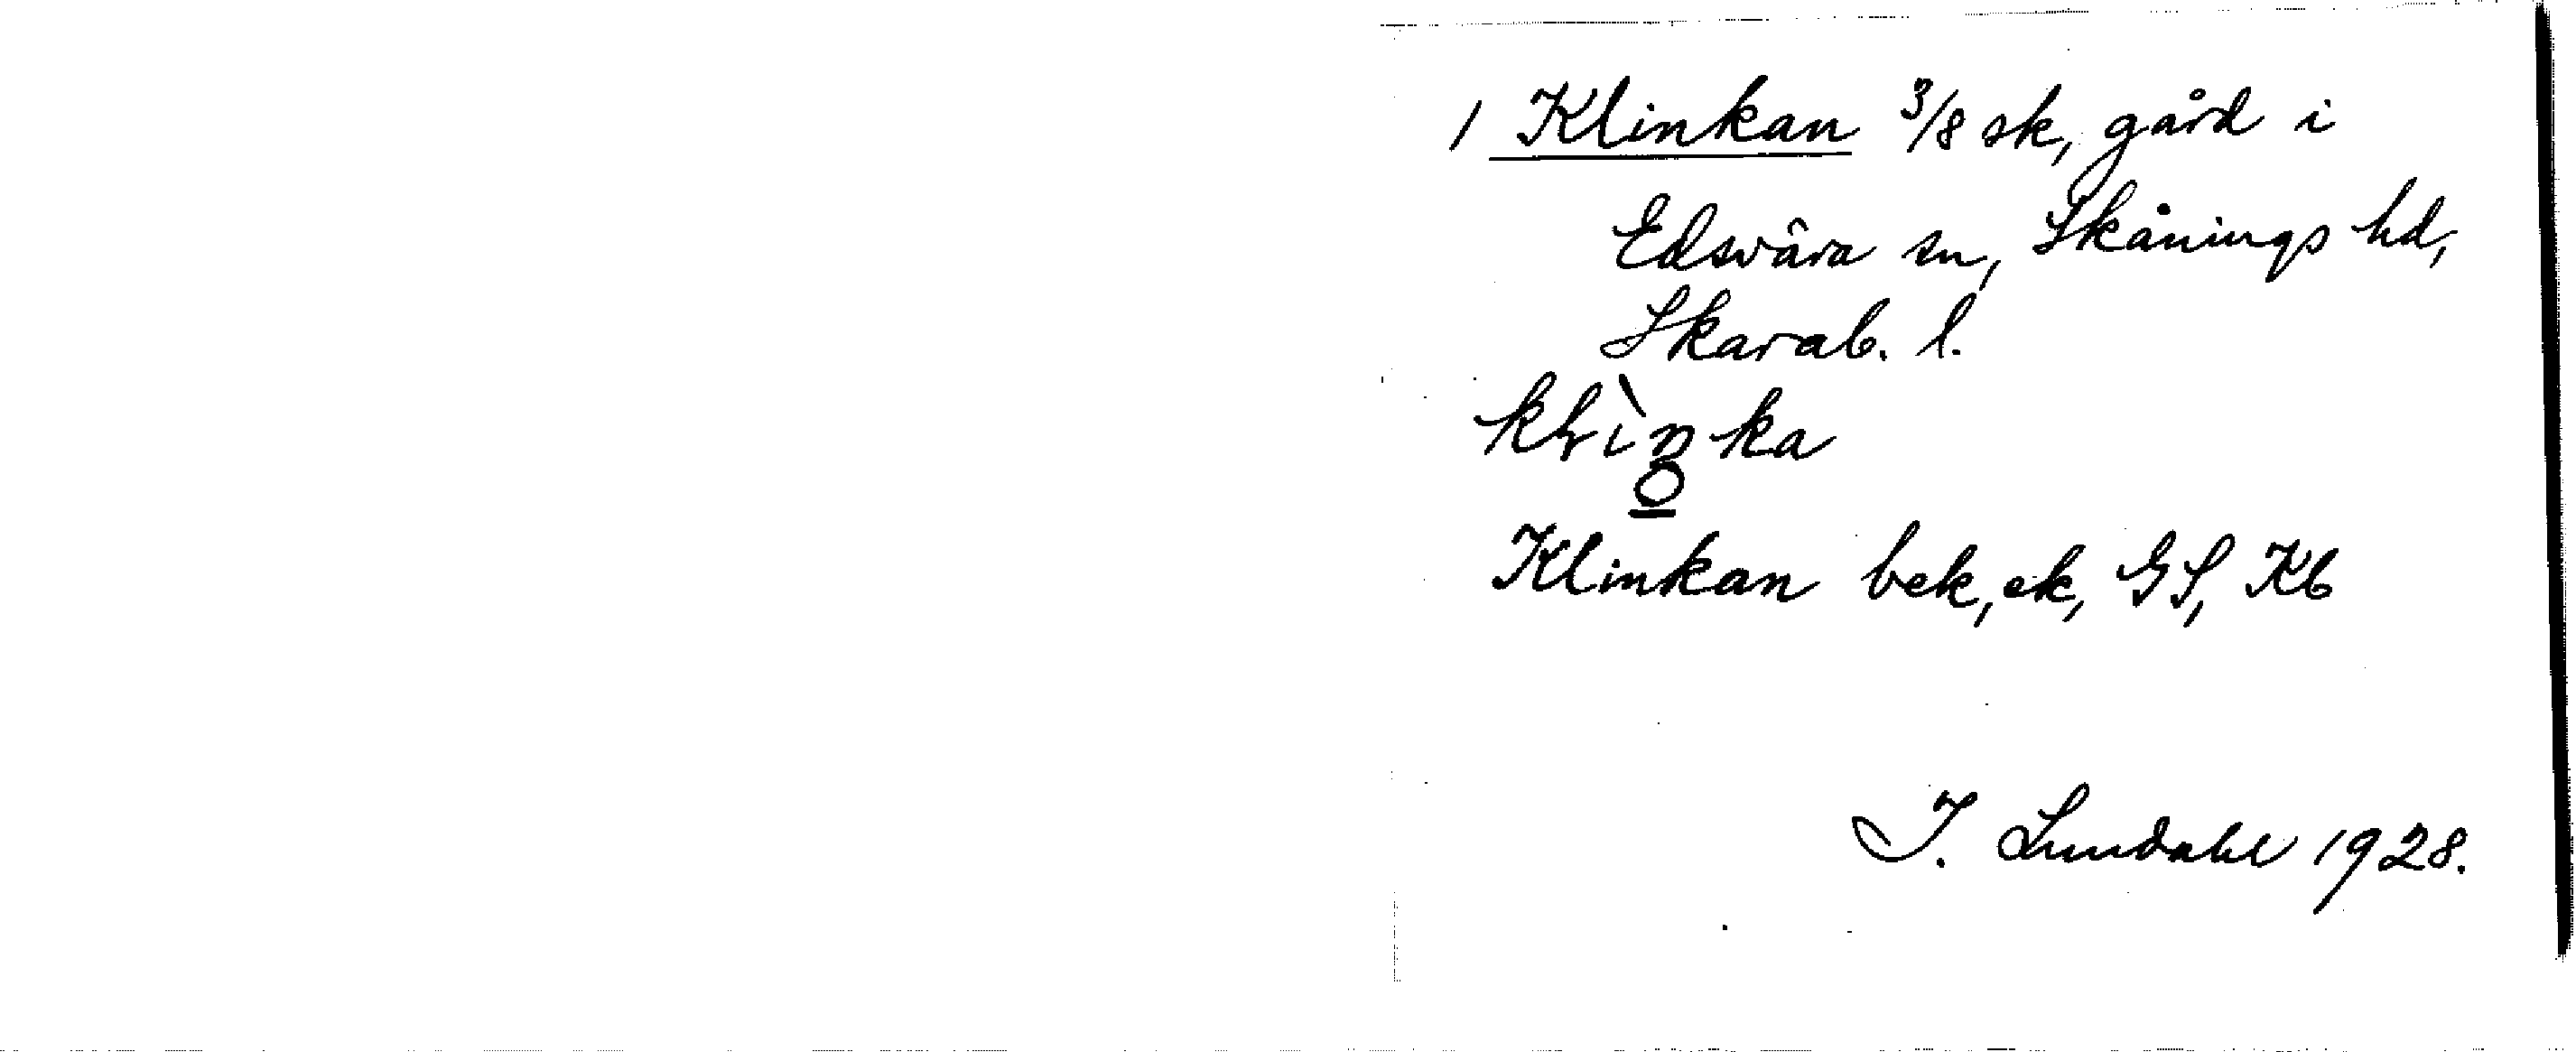 1 Klinkan 3/8 sk, gård i
Edsvära sn, Skånings hd,
Skarab. l.
Klinkan bek, ek, GS, Kb
I. Lundahl 1928.